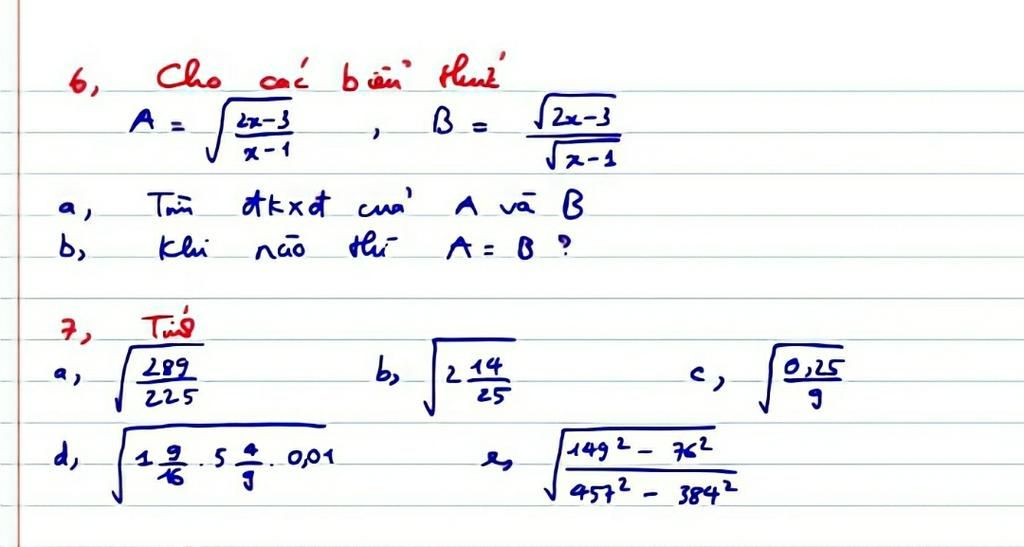 6, Cho các biểu thức
A = √((2x-3)/(x-1)) , B = √(2x-3)/√(x-1)
a, Tìm đkxđ của A và B
b, Khi nào thì A = B ?
7, Tính
a, √(289/225) b, √(2 14/25) c, √(0,25/9)
d, √(1 9/16 . 5 4/9 . 0,01) e, √((149² - 76²)/(457² - 384²))